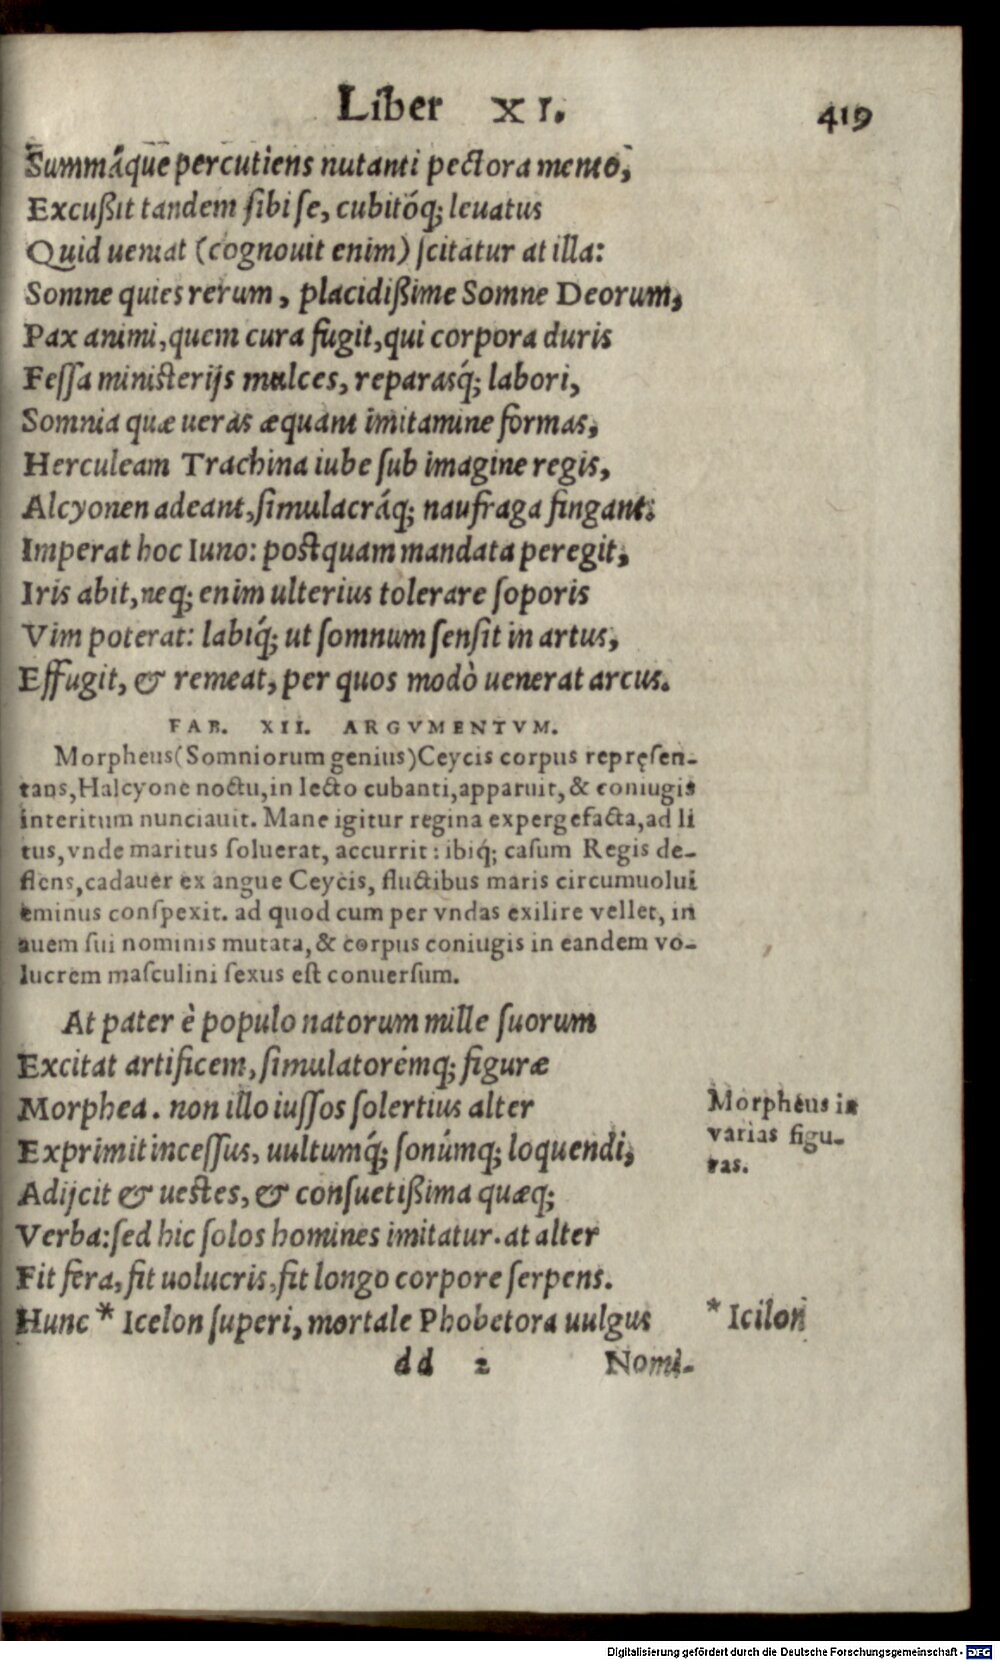 Liber XI. 419
Summáque percutiens nutanti pectora mento,
Excußit tandem sibi se, cubitóq; leuatus
Quid ueniat (cognouit enim) scitatur at illa:
Somne quies rerum, placidißime Somne Deorum,
Pax animi, quem cura fugit, qui corpora duris
Fessa ministerijs mulces, reparasq́; labori,
Somnia quæ ueras æquant imitamine formas,
Herculeam Trachina iube sub imagine regis,
Alcyonen adeant, simulacráq; naufraga fingant.
Imperat hoc Iuno: postquam mandata peregit,
Iris abit, neq; enim ulterius tolerare soporis
Vim poterat: labiq́; ut somnum sensit in artus,
Effugit, & remeat, per quos modò uenerat arcus.
FAB. XII. ARGVMENTVM.
Morpheus (Somniorum genius) Ceycis corpus repręsen-
tans, Halcyone noctu, in lecto cubanti, apparuit, & coniugis
interitum nunciauit. Mane igitur regina expergefacta, ad li
tus, vnde maritus soluerat, accurrit: ibiq́; casum Regis de-
flens, cadauer ex angue Ceycis, fluctibus maris circumuolui
eminus conspexit. ad quod cum per vndas exilire vellet, in
auem sui nominis mutata, & corpus coniugis in eandem vo-
lucrem masculini sexus est conuersum.
At pater è populo natorum mille suorum
Excitat artificem, simulatorémq; figuræ
Morphea. non illo iussos solertius alter
Exprimit incessus, uultumq́; sonúmq; loquendi,
Adijcit & uestes, & consuetißima quæq;
Verba: sed hic solos homines imitatur. at alter
Fit fera, fit uolucris, fit longo corpore serpens.
Hunc * Icelon superi, mortale Phobetora uulgus
Morpheus in
varias figu-
ras.
* Icilon
dd 2 Nomi-
Digitalisierung gefördert durch die Deutsche Forschungsgemeinschaft - DFG